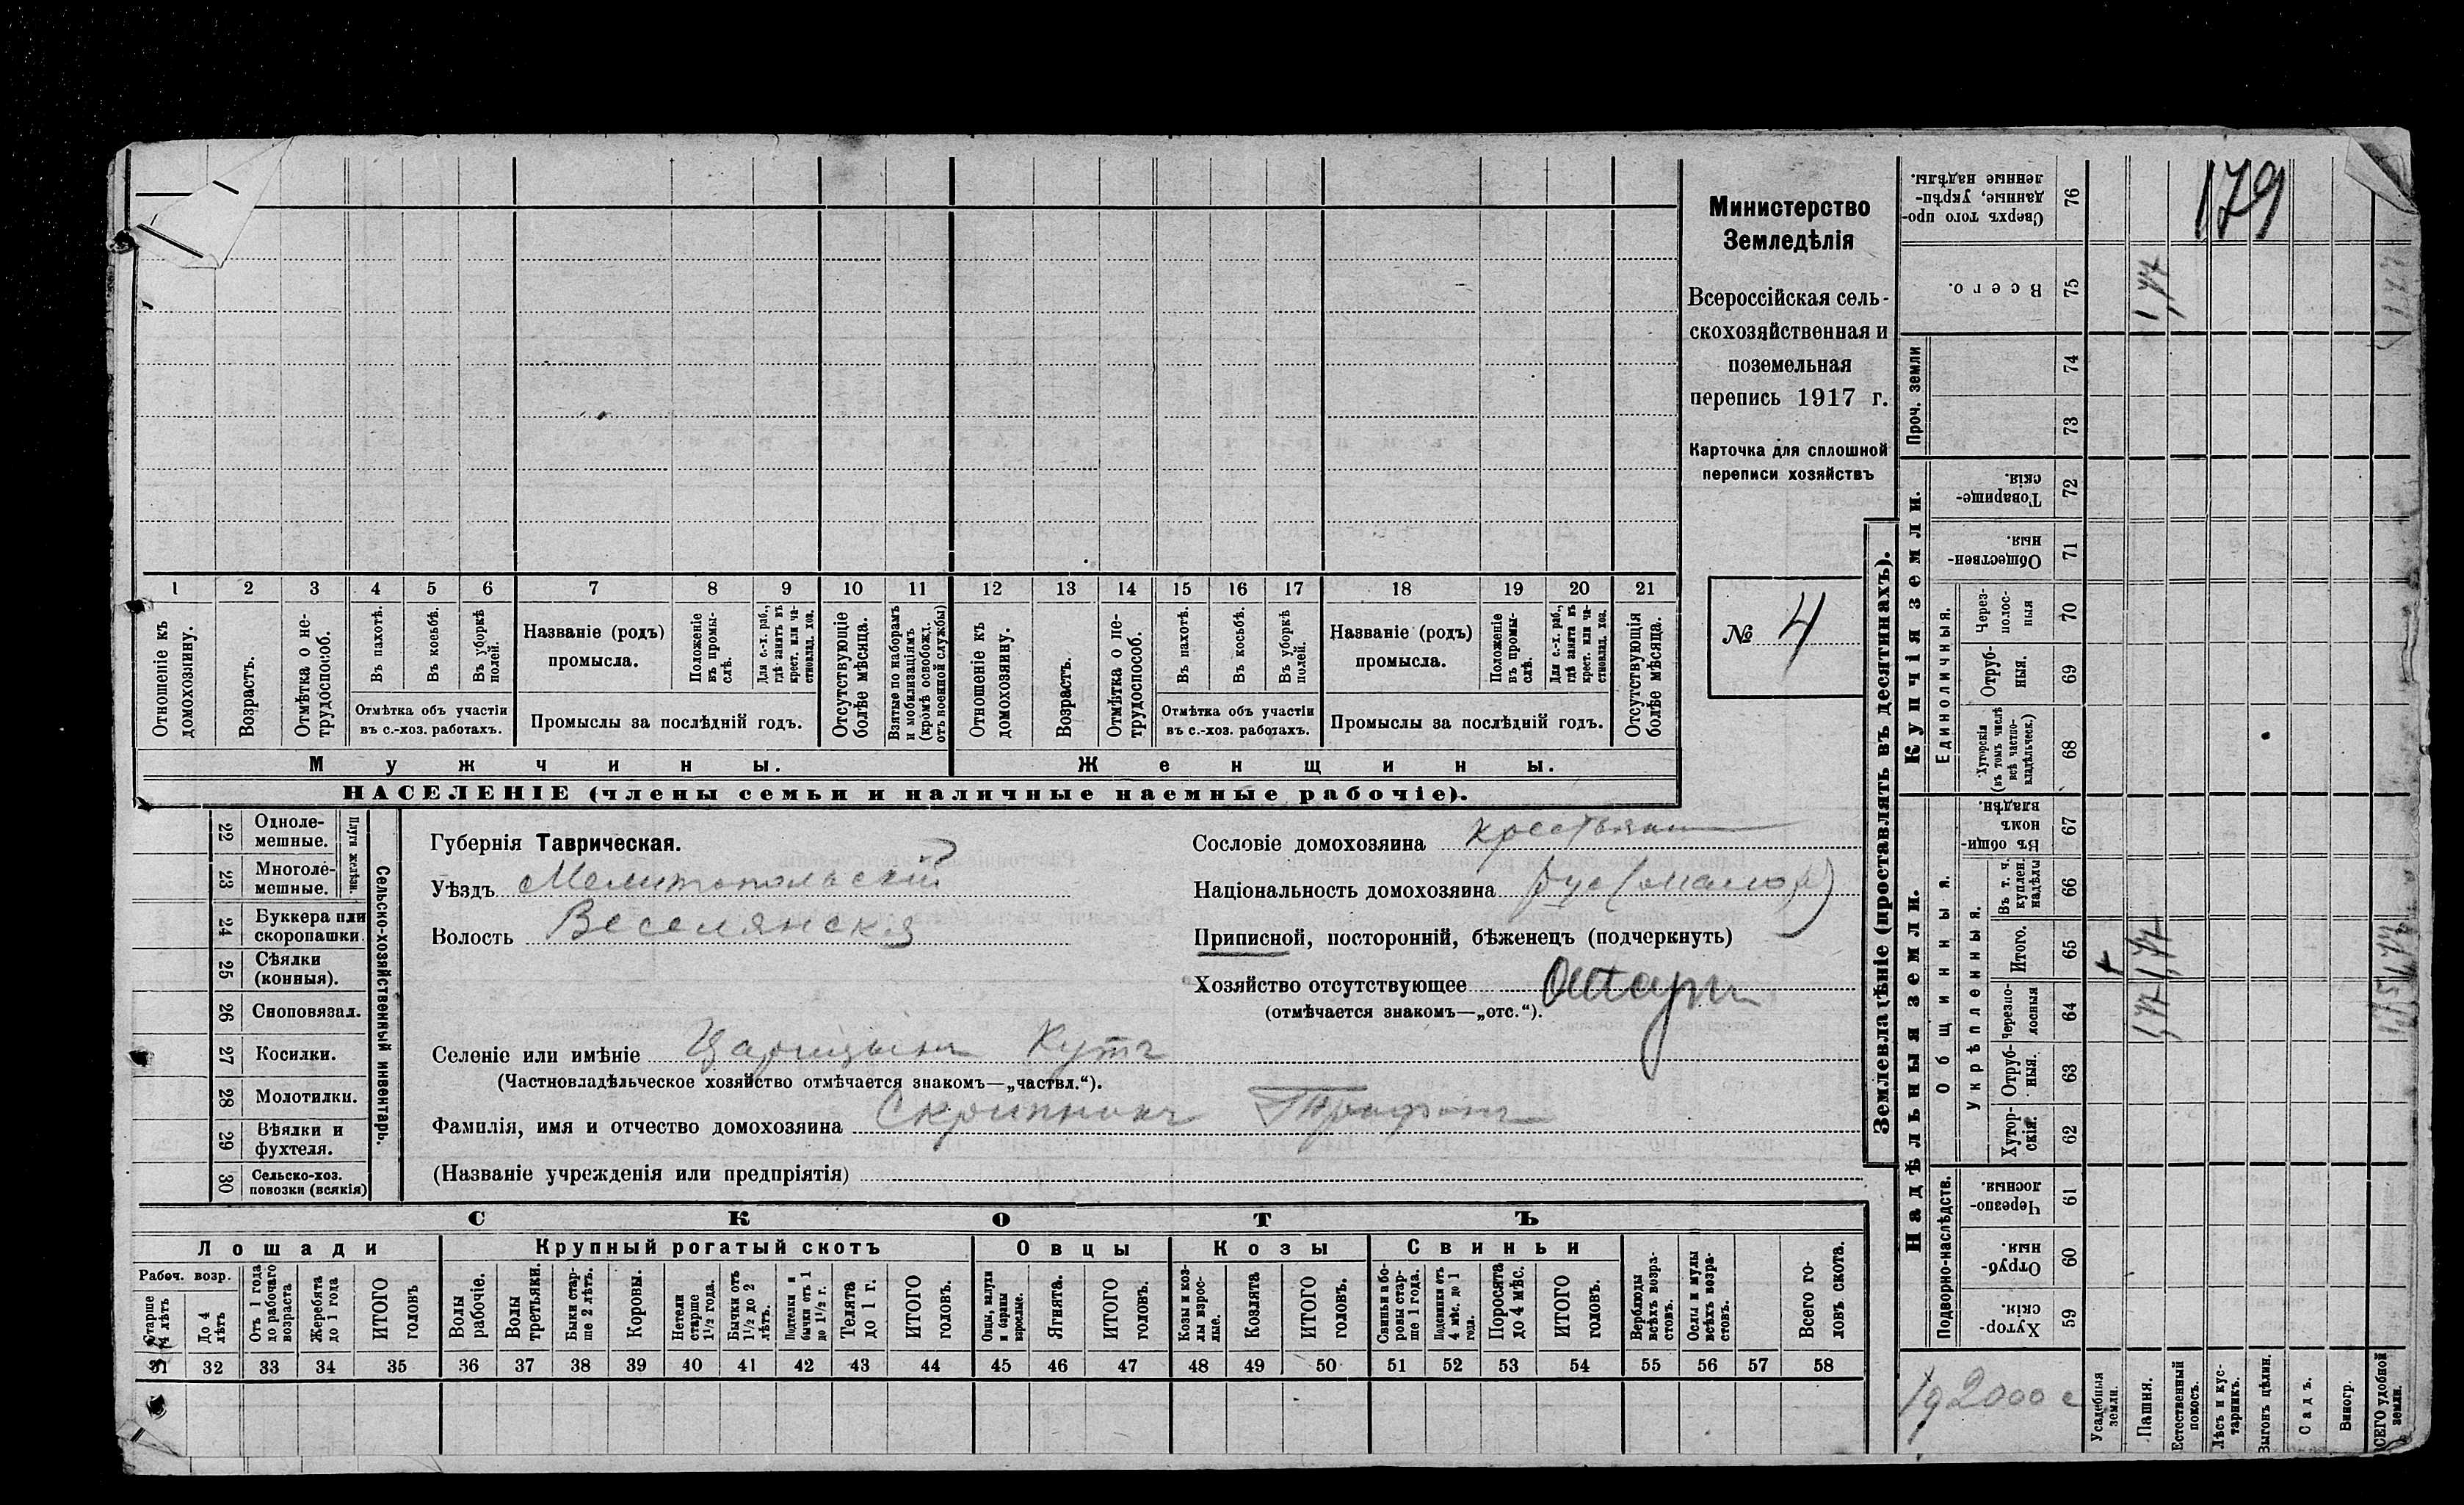 1 2 3 4 5 6 7 8 9 10 11 12 13 14 15 16 17 18 19 20 21
Отношеніе къ домохозяину.
Возрастъ.
Отмѣтка о не-
трудоспособ.
Въ пахотѣ.
Въ косьбѣ.
Въ уборкѣ полей.
Отмѣтка объ участіи
въ с.-хоз. работахъ.
Названіе (родъ)
промысла.
Положеніе въ промы-
слѣ.
Для с.-х. раб.,
гдѣ занятъ въ
крест. или ча-
стновлад. хоз.
Промыслы за послѣдній годъ.
Отсутствующіе
болѣе мѣсяца.
Взятые по наборамъ
и мобилизаціямъ
(кромѣ освобожд.
отъ военной службы)
Отношеніе къ
домохозяину.
Возрастъ.
Отмѣтка о не-
трудоспособ.
Въ пахотѣ.
Въ косьбѣ.
Въ уборкѣ
полей.
Отмѣтка объ участіи
въ с.-хоз. работахъ.
Названіе (родъ)
промысла.
Положеніе
въ промы-
слѣ.
Для с.-х. раб.,
гдѣ занята въ
крест. или ча-
стновлад. хоз.
Промыслы за послѣдній годъ.
Отсутствующія
болѣе мѣсяца.
Мужчины.
Женщины.
НАСЕЛЕНІЕ (члены семьи и наличные наемные рабочіе).
Министерство
Земледѣлія
Всероссійская сель-
скохозяйственная и
поземельная
перепись 1917 г.
Карточка для сплошной
переписи хозяйствъ
№ 4
22 Одноле-
мешные.
23 Многоле-
мешные.
Плуги желѣзн.
24 Буккера или
скоропашки.
25 Сѣялки
(конныя).
26 Сноповязал.
27 Косилки.
28 Молотилки.
29 Вѣялки и
фухтеля.
30 Сельско-хоз.
повозки (всякія)
Сельско-хозяйственный инвентарь.
Губернія Таврическая.
Уѣздъ Мелитопольскій
Волость Веселянская
Селеніе или имѣніе Царицынъ Кутъ
(Частновладѣльческое хозяйство отмѣчается знакомъ—„частвл.“).
Фамилія, имя и отчество домохозяина Скрипникъ Трофимъ
(Названіе учрежденія или предпріятія)
Сословіе домохозяина крестьянинъ
Національность домохозяина рус (малор)
Приписной, посторонній, бѣженецъ (подчеркнуть)
Хозяйство отсутствующее
(отмѣчается знакомъ—„отс.“).
СКОТЪ
Лошади
Крупный рогатый скотъ
Овцы
Козы
Свиньи
Рабоч. возр.
Старше
4 лѣтъ
До 4
лѣтъ
Отъ 1 года
до рабочаго
возраста
Жеребята
до 1 года
ИТОГО
головъ
Волы
рабочіе.
Волы
третьяки.
Быки стар-
ше 2 лѣтъ.
Коровы.
Нетели
старше
1½ года.
Бычки отъ
1½ до 2
лѣтъ.
Подтелки и
бычки отъ 1
до 1½ г.
Телята
до 1 г.
ИТОГО
головъ.
Овцы, валухи
и бараны
взрослые.
Ягнята.
ИТОГО
головъ.
Козы и коз-
лы взрос-
лые.
Козлята
ИТОГО
головъ.
Свиньи и бо-
ровы стар-
ше 1 года.
Подсвинки отъ
4 мѣс. до 1
года.
Поросята
до 4 мѣс.
ИТОГО
головъ.
Верблюды
всѣхъ возра-
стовъ.
Ослы и мулы
всѣхъ возра-
стовъ.
Всего го-
ловъ скота.
31 32 33 34 35 36 37 38 39 40 41 42 43 44 45 46 47 48 49 50 51 52 53 54 55 56 57 58
Землевладѣніе (проставлять въ десятинахъ).
Надѣльныя земли.
Купчія земли.
Проч. земли
Подворно-наслѣдств.
Общинныя.
Укрѣпленныя.
Единоличныя.
Сверхъ того про-
данные, укрѣп-
ленные надѣлы.
76
179
Всего.
75
1,77
74
73
Товарище-
скія.
72
Обществен-
ныя.
71
Через-
полос-
ныя
70
Отруб-
ныя.
69
Хуторскія
(въ томъ числѣ
всѣ частно-
владѣльческ.)
68
Въ общи-
номъ
владѣн.
67
Въ т. ч.
куплен.
надѣлы
66
Итого.
65
1,77
Черезпо-
лосныя
64
1,77
Отруб-
ныя.
63
Хутор-
скія.
62
Черезпо-
лосныя.
61
Отруб-
ныя.
60
Хутор-
скія.
59
Усадебныя
земли.
Пашня.
Естественный
покосъ.
Лѣсъ и кус-
тарникъ.
Выгонъ цѣлин.
Садъ.
Виногр.
ВСЕГО удобной
земли.